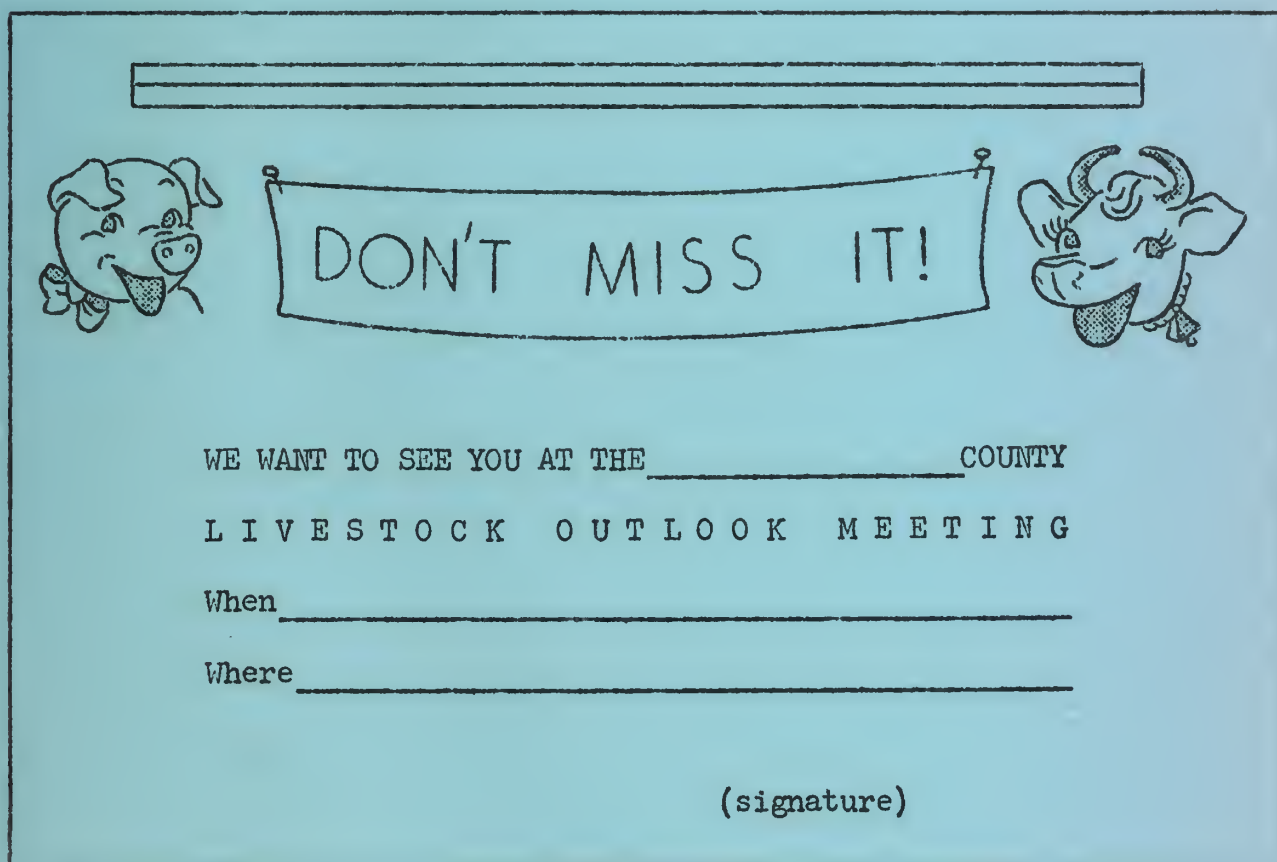 DON'T MISS IT!
WE WANT TO SEE YOU AT THE COUNTY
LIVESTOCK OUTLOOK MEETING
When
Where
(signature)